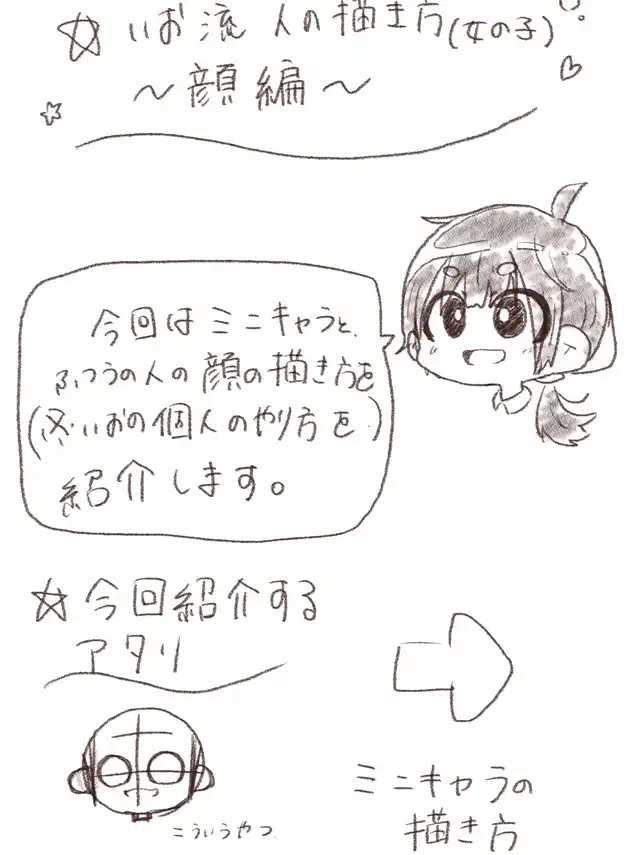 ☆ いお流 人の描き方(女の子)
～顔編～
今回はミニキャラと、
ふつうの人の顔の描き方を
(冬いおの個人のやり方を)
紹介します。
☆今回紹介する
アタリ
こういうやつ
ミニキャラの
描き方